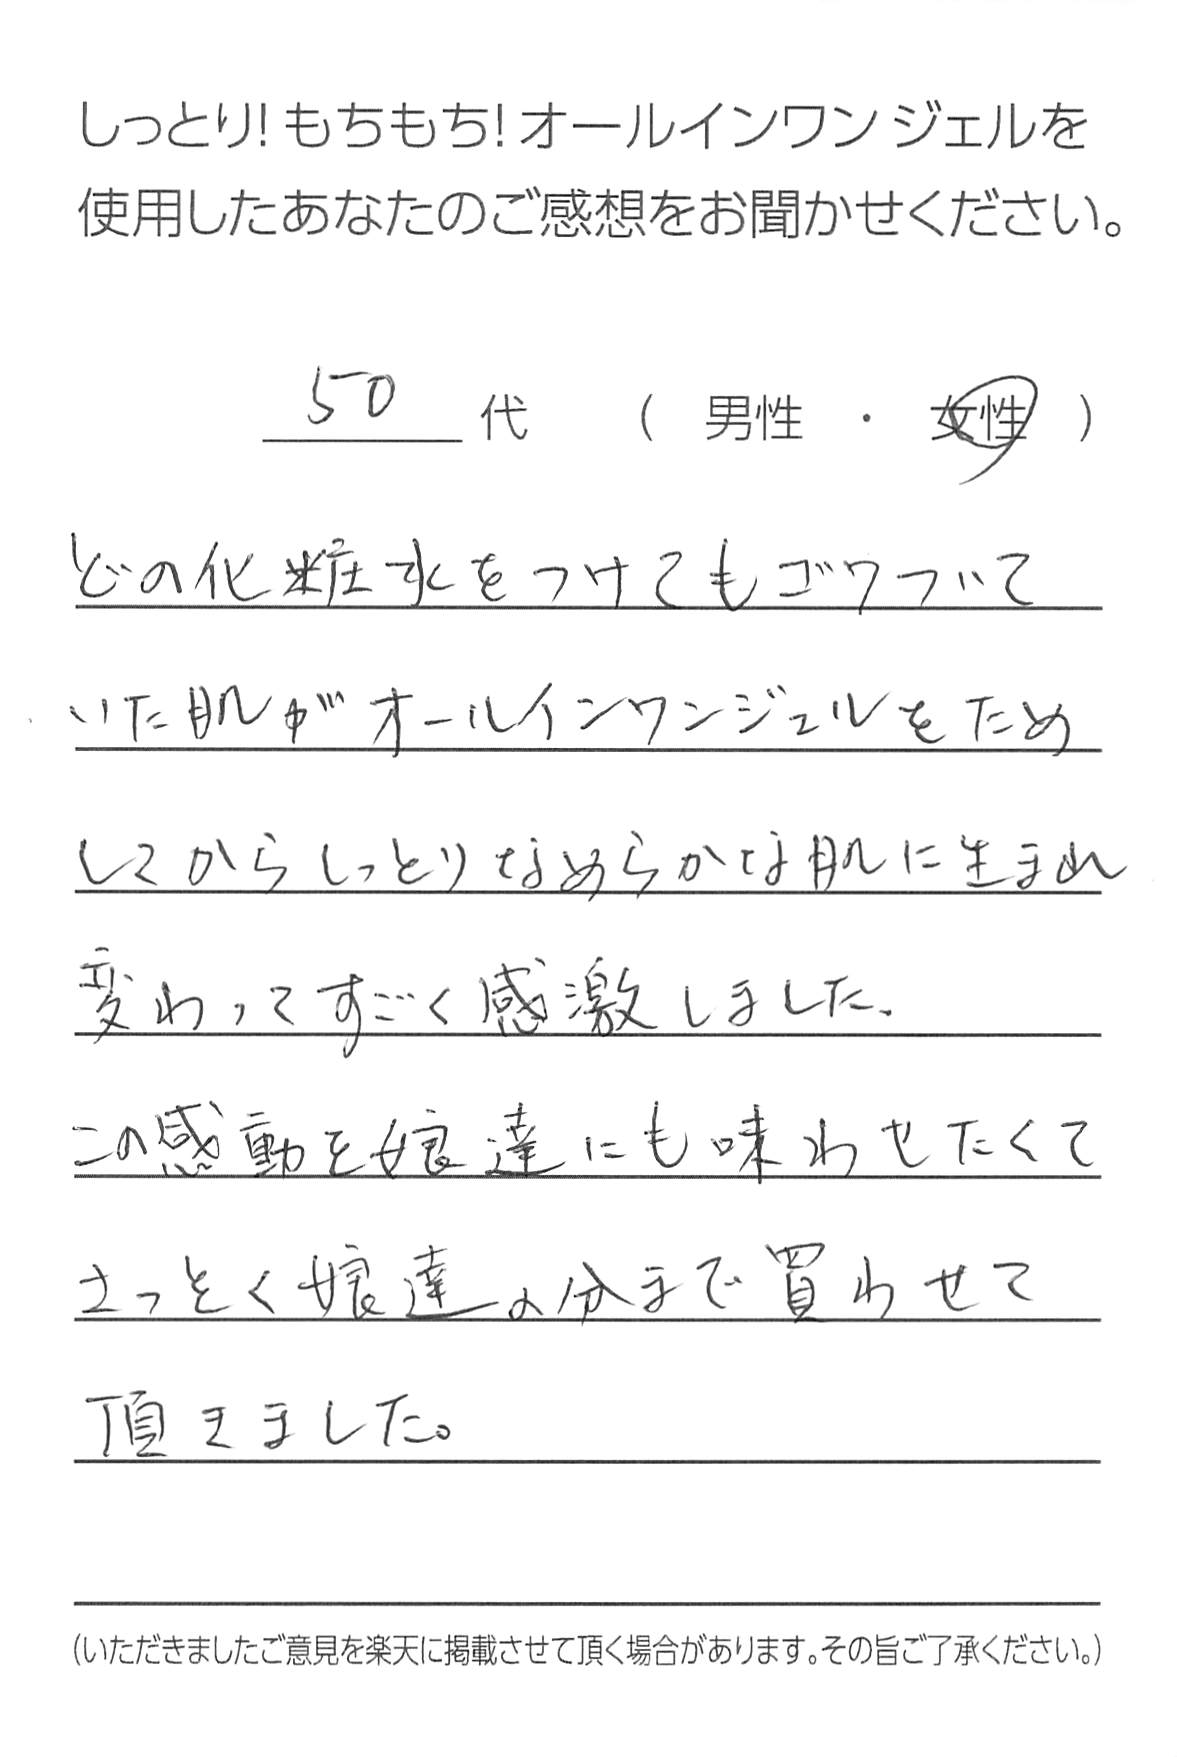 しっとり!もちもち!オールインワン ジェルを
使用したあなたのご感想をお聞かせください。
50 代 ( 男性 ・ 女性 )
どの化粧水をつけてもゴワついて
いた肌がオールインワンジェルをため
してからしっとりなめらかな肌に生まれ
変わってすごく感激しました。
この感動を娘達にも味わせたくて
さっそく娘達の分まで買わせて
頂きました。
(いただきましたご意見を楽天に掲載させて頂く場合があります。その旨ご了承ください。)